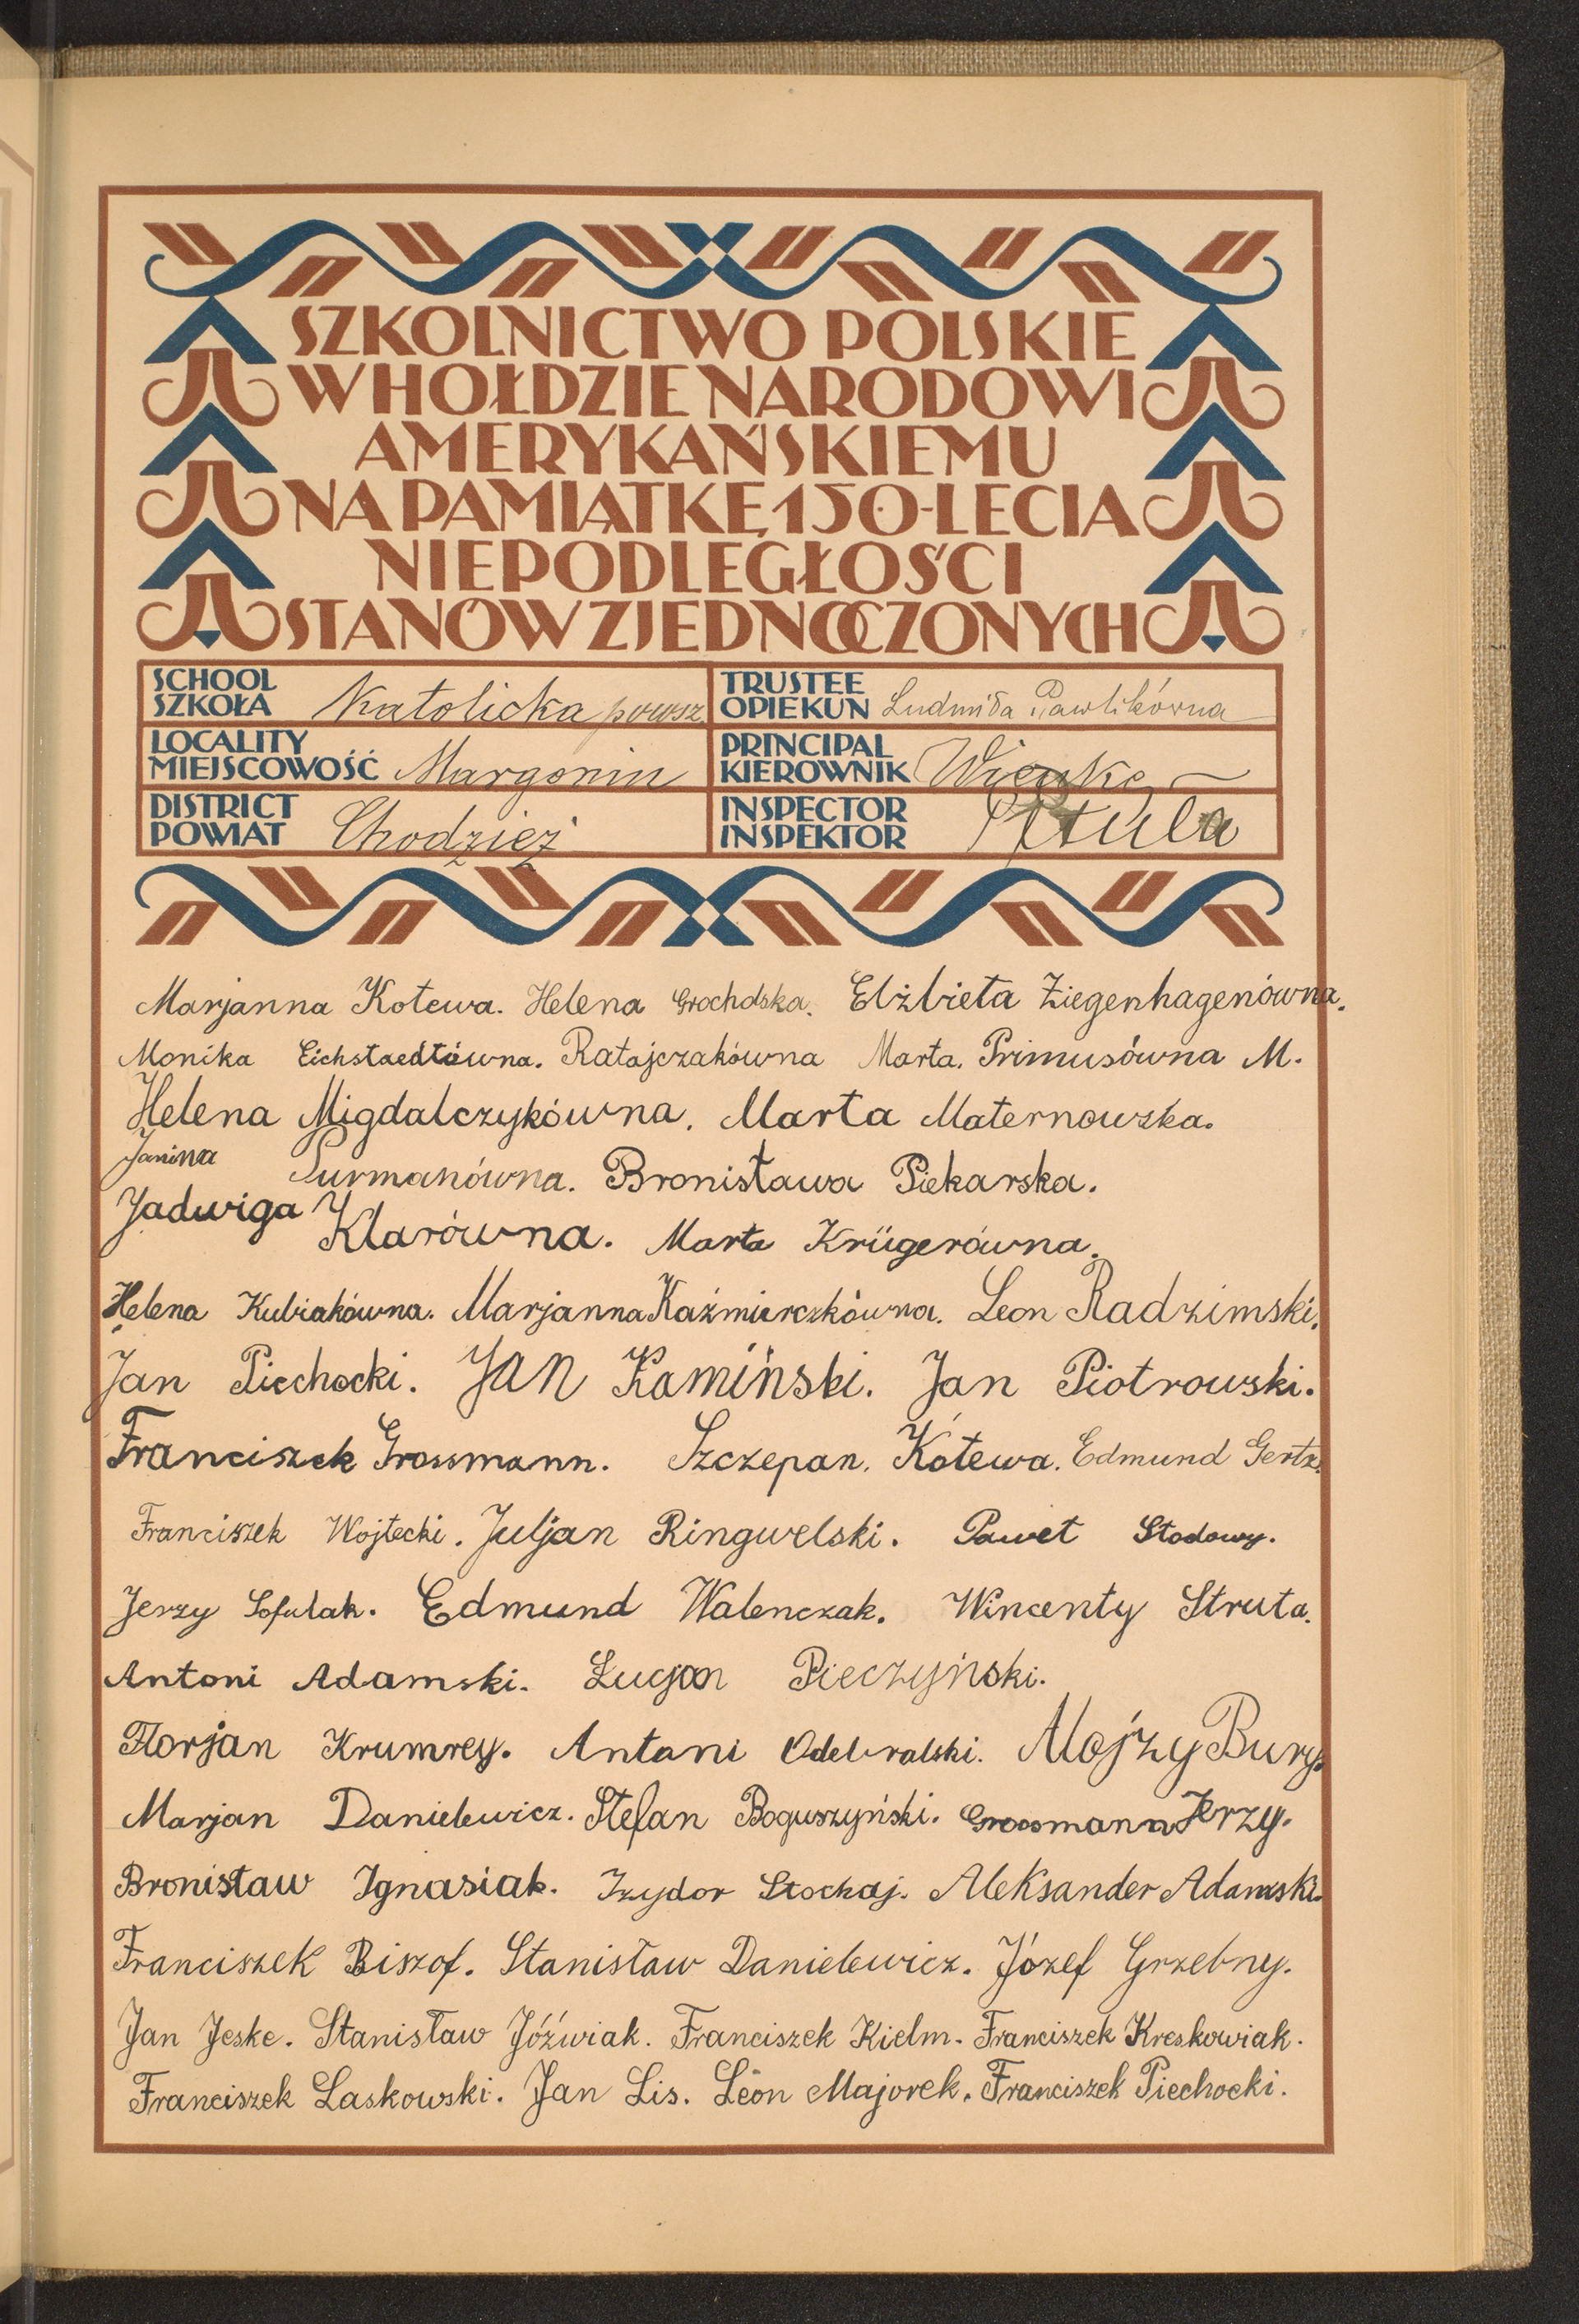 SZKOLNICTWO POLSKIE
W HOŁDZIE NARODOWI
AMERYKAŃSKIEMU
NA PAMIĄTKĘ 150-LECIA
NIEPODLEGŁOŚCI
STANÓW ZJEDNOCZONYCH
SCHOOL
SZKOŁA Katolicka powsz
TRUSTEE
OPIEKUN Ludmiła Pawlikówna
LOCALITY
MIEJSCOWOŚĆ Margonin
PRINCIPAL
KIEROWNIK
DISTRICT
POWIAT Chodzież
INSPECTOR
INSPEKTOR
Marjanna Kotewa. Helena Elżbieta Ziegenhagenówna.
Monika Eichstaedtówna. Ratajczakówna Marta. Primusówna M.
Helena Migdalczykówna. Marta Maternowska.
Janina Purmanówna. Bronisława Piekarska.
Jadwiga Klarówna. Marta Krügerówna.
Helena Kubiakówna. Marjanna Kaźmierczkówna. Leon Radzimski.
Jan Piechocki. Jan Kamiński. Jan Piotrowski.
Franciszek Grossmann. Szczepan. Kotewa. Edmund Gertz.
Franciszek Wojtecki. Juljan Ringwelski. Paweł Stodowy.
Jerzy Sofulak. Edmund Walenczak. Wincenty Struta.
Antoni Adamski. Lucjan Pieczyński.
Florjan Krumrey. Antoni Odebralski. Alojzy Bury.
Marjan Danielewicz. Stefan Boguszyński. Grossmann Jerzy.
Bronisław Ignasiak. Izydor Stochaj. Aleksander Adamski.
Franciszek Biszof. Stanisław Danielewicz. Józef Grzebny.
Jan Jeske. Stanisław Jóźwiak. Franciszek Kielm. Franciszek Kreskowiak.
Franciszek Laskowski. Jan Lis. Leon Majorek. Franciszek Piechocki.